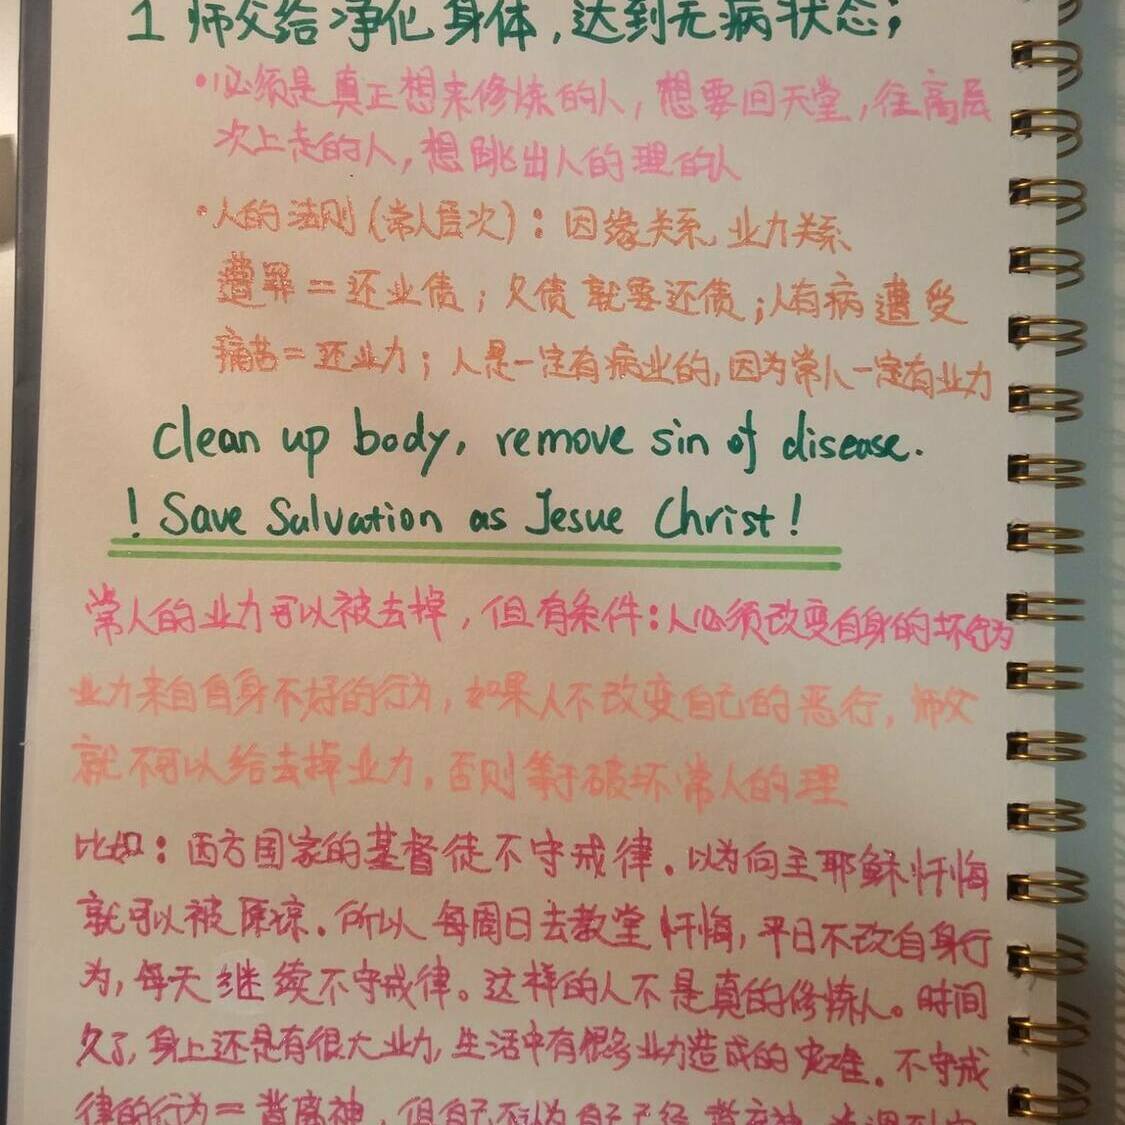 1 师父给净化身体,达到无病状态;
·必须是真正想来修炼的人,想要回天堂,往高层
次上走的人,想跳出人的理的人
·人的法则(常人层次):因缘关系,业力关系
遭罪=还业债;欠债就要还债;人有病遭受
痛苦=还业力;人是一定有病业的,因为常人一定有业力
clean up body, remove sin of disease.
! Save Salvation as Jesue Christ!
常人的业力可以被去掉,但有条件:人必须改变自身的坏行为
业力来自自身不好的行为,如果人不改变自己的恶行,师父
就不可以给去掉业力,否则等于破坏常人的理
比如:西方国家的基督徒不守戒律.以为向主耶稣忏悔
就可以被原谅.所以每周日去教堂忏悔,平日不改自身行
为,每天继续不守戒律。这样的人不是真的修炼人。时间
久了,身上还是有很大业力,生活中有很多业力造成的灾难.不守戒
律的行为=背离神,但自己不认为自己已经背离神